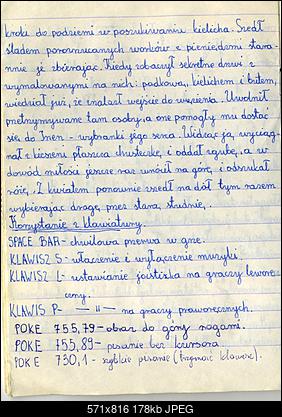 kroki do podziemi w poszukiwaniu kielicha. Szedł
śladem porozrzucanych worków z pieniędzmi stara-
nnie je zbierając. Kiedy zobaczył sekretne drzwi z
wymalowanymi na nich: podkową, kielichem i
wiedział już, że znalazł wejście do więzienia. Uwolnił
przetrzymywane tam osoby, a one pomogły mu dostać
się do Inen - wybranki jego serca. Widząc ją, wyciąg-
nął z kieszeni płaszcza chusteczkę, i oddał zgubę, a w
dowód miłości jeszcze raz wrócił na górę, i odszukał
różę. Z kwiatem ponownie zszedł na dół tym razem
wybierając drogę przez starą studnię.
Korzystanie z klawiatury.
SPACE BAR - chwilowa przerwa w grze.
KLAWISZ S - włączenie i wyłączenie muzyki.
KLAWISZ L - ustawianie joisticka na graczy leworę-
czny.
KLAWIS P- —〃— na graczy praworęcznych.
POKE 755,79 - obraz do góry nogami.
POKE 755,89 - pisanie bez kursora.
POKE 730,1 - szybkie pisanie (trzymać klawisz).
571x816 178kb JPEG